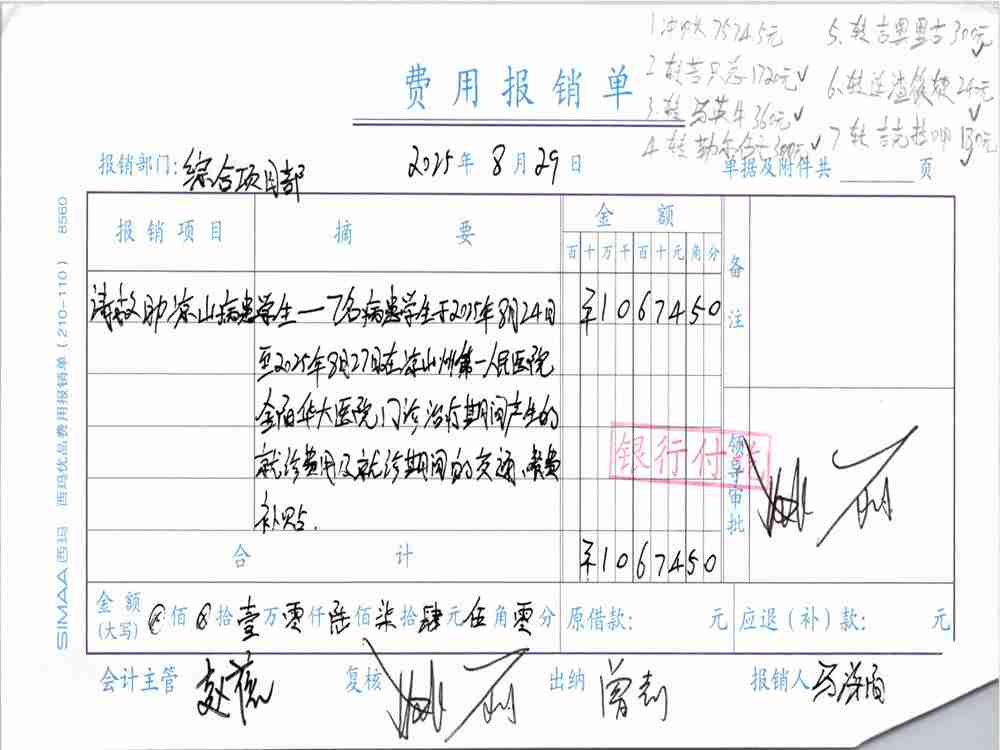 1. 冲欠7574.5元
5. 转吉里里古300元
2. 转吉只总1720元
6. 转连渣 24元
3. 转马英牛360元
4. 转勒尔 300元
7. 转吉克拉 130元
费用报销单
报销部门: 综合项目部
2025年8月29日
单据及附件共 页
报销项目 摘要 金额 备注
百十万千百十元角分
请救助凉山病患学生一7名病患学生于2025年8月24日 ¥1067450
至2025年8月27日在凉山州第一人民医院
华大医院,门诊治疗期间产生的
就诊费用及就诊期间的交通、餐费
补贴.
银行付讫
领导审批
合计 ¥1067450
金额(大写) ⊗佰⊗拾壹万零仟陆佰柒拾肆元伍角零分 原借款: 元 应退(补)款: 元
会计主管 赵 复核 出纳 曾 报销人 马
SIMAA 西玛 西玛优品费用报销单(210-110) 8560